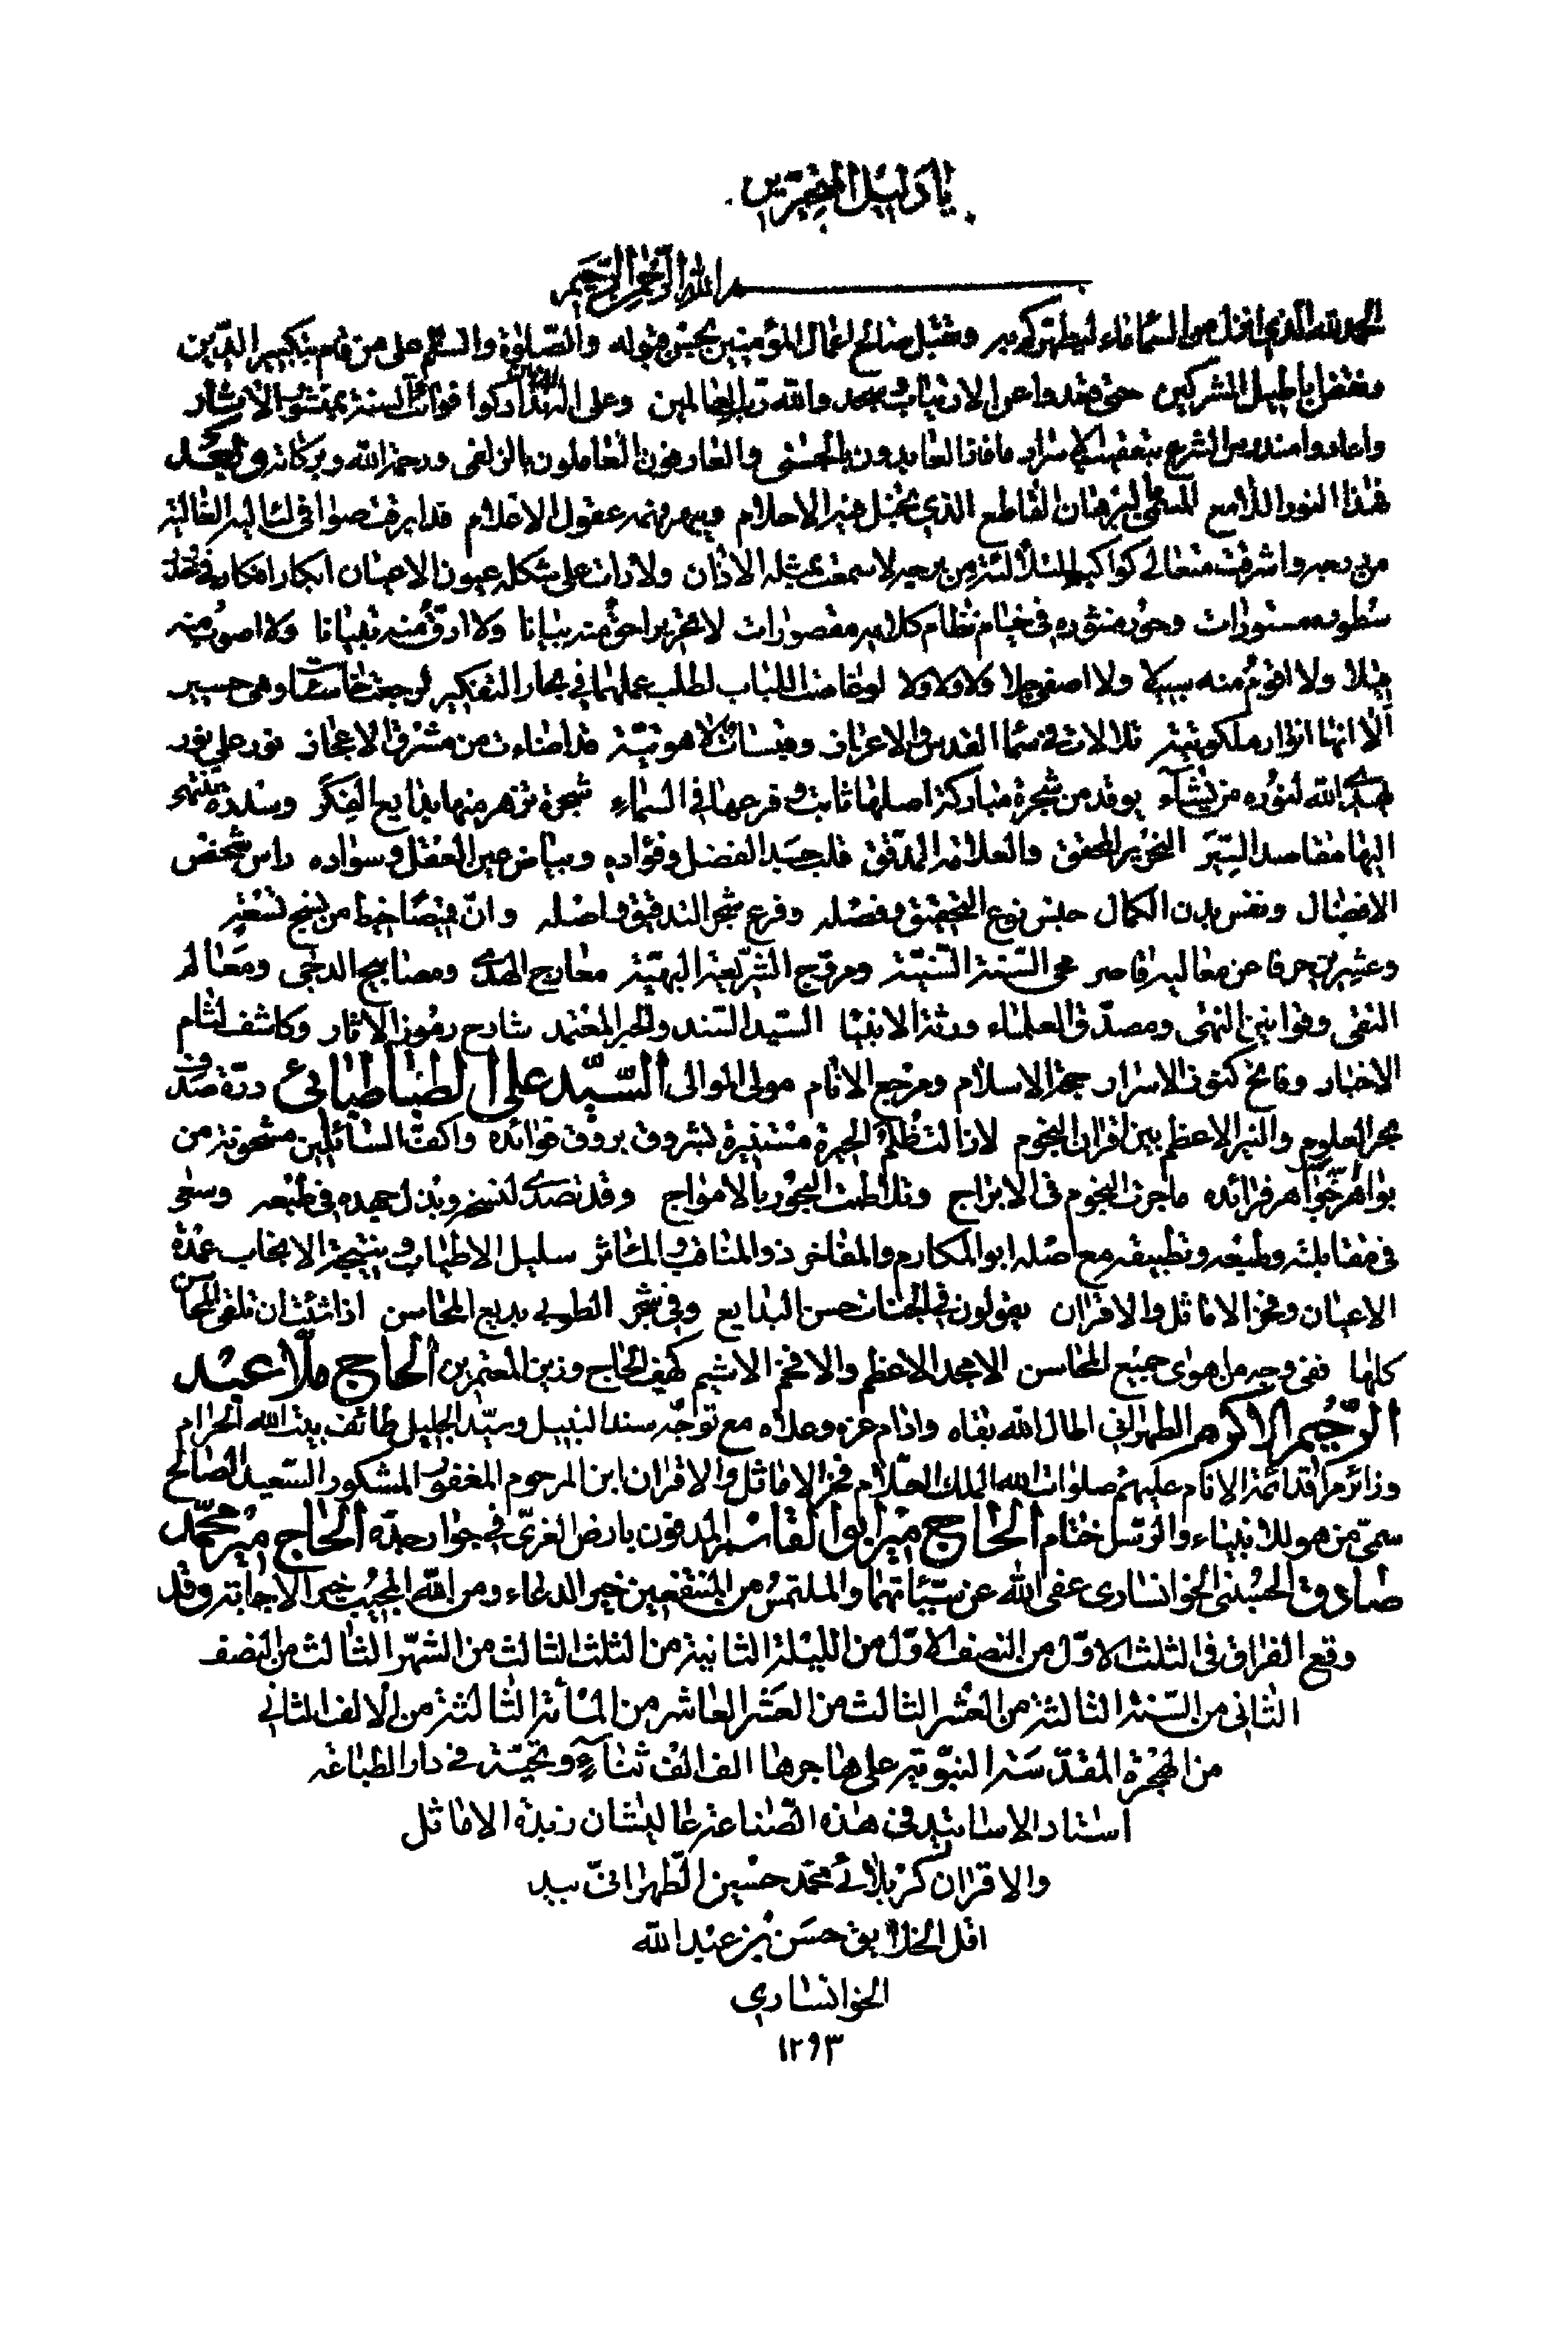 يا دليل المتحيرين
بسم الله الرحمن الرحيم
الحمد لله الذي انزل من السماء ماء ليطهركم به وتقبل صالح اعمال المؤمنين بحسن قبوله والصلوة والسلم على من قام بتكبير الدين
ونقض اباطيل المشركين حتى والله رب العالمين وعلى الذين تداركوا فوائت السنة
واعادوا الشرع الاسرار ما فات العابدون بالحسنى والعارفون العاملون بالزلفى ورحمة الله وبركاته وبعد
فهذا النور اللامع المسمى بالبرهان القاطع الذي فيه الاحلام ويبهر منه عقول الاعلام قد
واشرقت كواكب لا سمعت بمثله الاذان ولا رات على شكله عيون الاعيان ابكار افكاره في
سطوره مستورات وحور منثوره في خيام نظام كلامه مقصورات لا تحرير احق منه بيانا ولا ادق منه تبيانا ولا اصوب منه
قيلا ولا اقوم منه سبيلا ولا اصفى ولا ولا ولا لو غاصت الالباب لطلب في بحار التفكير لرجعت خاسئا وهي حسير
الا انها انوار ملكوتية تلالات في سماء القدس والاعراف وقبسات لاهوتية قد اضاءت من مشرق الاعجاز نور على نور
يهدي الله لنوره من يشآء يوقد من شجرة مباركة اصلها ثابت وفرعها في السماء شجرة تزهر منها بدايع الفكر وسدرة تنتهي
اليها مقاصد السير النحرير المحقق والعلامة المدقق قلب جسد الفضل وفؤاده وبياض عين العقل وسواده راس شخص
الافضال ونفس بدن الكمال جنس نوع التحقيق وفصله وفرع شجر التدقيق واصله وان من تسعة
وعشرين حرفا عن معاليه قاصر محيى السنة السنية ومروج الشريعة البهية معارج الهدى ومصابيح الدجى ومعالم
التقى وقوانين النهى ومصدق العلماء ورثة الانبياء السيد السند والحبر المعتمد شارح رموز الاثار وكاشف لثام
الاخبار وفاتح كنوز الاسرار حجة الاسلام ومرجع الانام مولى الموالى السيد على الطباطبائي درة صدف
بحر العلوم والنير الاعظم بين اقران النجوم لا زالت ظلم الحيرة مستنيرة بشروق بروق فوائده واكف السائلين مشحونة من
جواهر فرائده ما جرت النجوم في الابراج وتلاطمت البحور بالامواج وقد تصدى لنسخه وبذل جهده في طبعه وسعى
في مقابلته وتطبيقه مع اصله ابو المكارم والمفاخر ذو المناقب والماثر سليل الاطياب ونتيجة الانجاب عمدة
الاعيان وفخر الاماثل والاقران يقولون في الجنات حسن البدايع وفي الطوبى بديع المحاسن اذا شئت ان تلقى المحاسن
كلها ففى وجه من اهوى جميع المحاسن الامجد الاعظم والافخم الاشيم كهف الحاج وزين المعتمرين الحاج ملا عبد
الرحيم الاكرم الطهراني اطال الله بقاه وادام عزه وعلاه مع توجه سند النبيل وسيد الجليل طائف بيت الله الحرام
وزائر مراقد ائمة الانام عليهم صلوات الله الملك العلام فخر الاماثل والاقران ابن المرحوم المغفور المشكور السعيد الصالح
سمي من هو للانبياء والرسل ختام الحاج مير ابو القاسم المدفون بارض الغري في جوار جده الحاج مير محمد
صادق الحسينى الخوانساري عفى الله عن سيئاتهما والملتمس من المنتفعين خير الدعاء ومن الله المجيب خير الاجابة وقد
وقع الفراق في الثلث الاول من النصف الاول من الليلة الثانية من الثلث الثالث من الشهر الثالث من النصف
الثاني من السنة الثالثة من العشر الثالث من العشر العاشر من المأئة الثالثة من الالف الثاني
من الهجرة المقدسة النبوية على هاجرها الف الف ثنآء وتحية في دار الطباعة
استاد الاساتيد في هذه الصناعة عاليشان زبدة الاماثل
والاقران كربلائي محمد حسين الطهراني بيد
اقل الخلايق حسن بن عبد الله
الخوانساري
١٢٩٣